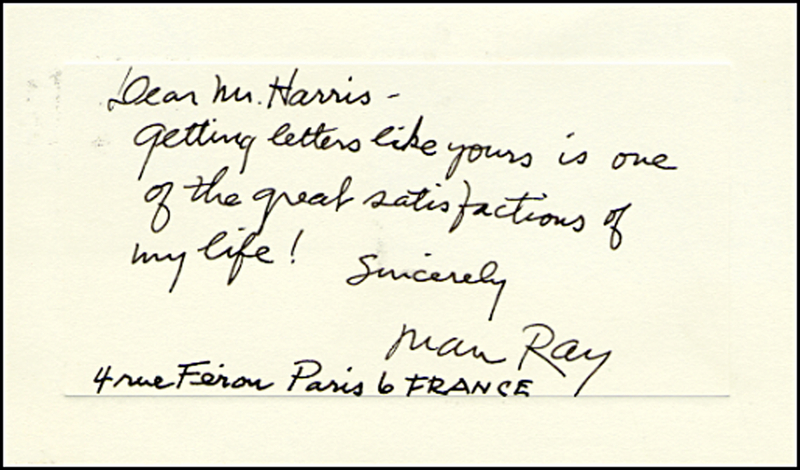 Dear Mr. Harris -
Getting letters like yours is one
of the great satisfactions of
my life!
Sincerely
Man Ray
4 rue Férou Paris 6 FRANCE